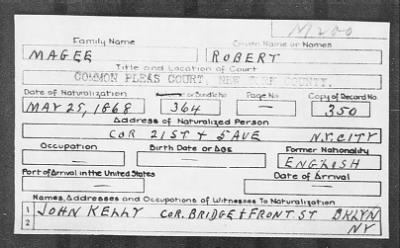 M200
Family Name Given Name or Names
MAGEE ROBERT
Title and Location of Court
COMMON PLEAS COURT, NEW YORK COUNTY.
Date of Naturalization or Bundle No Page No Copy of Record No
MAY 25, 1868 364 — 350
Address of Naturalized Person
COR 21ST + 5 AVE N.Y. CITY
Occupation Birth Date or Age Former Nationality
— — ENGLISH
Port of Arrival in the United States Date of Arrival
— —
Names, Addresses and Occupations of Witnesses To Naturalization
1 JOHN KELLY COR. BRIDGE + FRONT ST BKLYN
2 NY